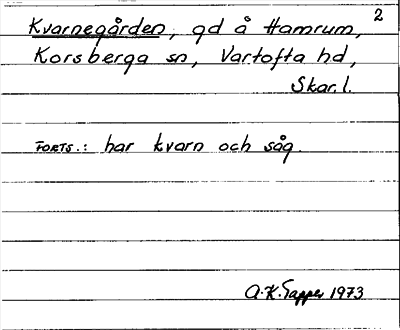 2
Kvarnegården, gd å Hamrum,
Korsberga sn, Vartofta hd,
Skar. l.
FORTS.: har kvarn och såg.
A.K. Tapper 1973